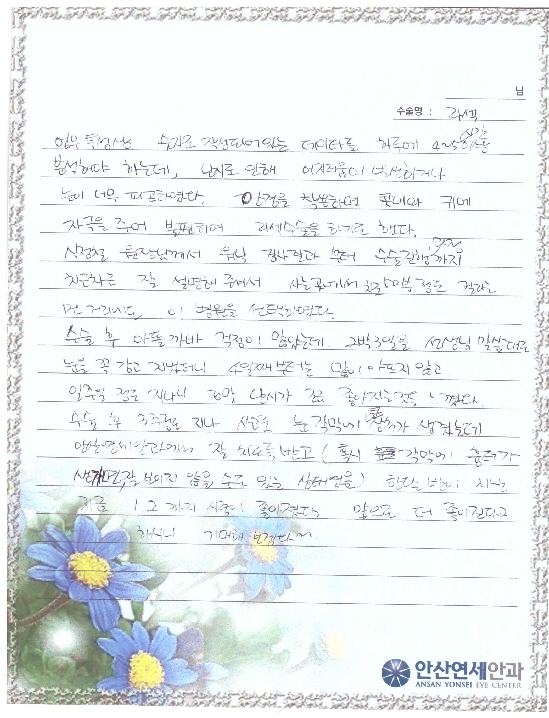 님
수술명 : 라섹
업무 특성상 숫자로 작성되어있는 데이터를 하루에 4~5시간
분석해야 하는데, 난시로 인해 어지러움이 발생하거나
눈이 너무 피곤하였다. 안경을 착용하면 콧대와 귀에
자극을 주어 불편하여 라섹수술을 하기로 했다.
신정철 원장님께서 검사결과 부터 수술과정까지
차근차근 잘 설명해 주셔서 사는곳에서 정도 걸리는
먼 거리지만 이 병원을 선택하였다.
수술 후 아플까봐 걱정이 많았는데 2박3일을 선생님 말씀대로
눈을 꼭 감고 지냈더니 4일째부터는 많이 아프지 않고
일주일 정도 지나니 난시가 점점 좋아지는것을 느꼈다.
수술 후 정도 지나 눈 각막에 염증가 생겼는데
안산연세안과에서 잘 치료를 받고 (혹시 각막에 염증가
생기면, 잘 보이지 않을 수도 있는 상태였음) 한달 반이 지난
지금 1.2 까지 시력이 좋아졌다. 앞으로 더 좋아진다고
하시니 기대해 보겠다~
안산연세안과
ANSAN YONSEI EYE CENTER